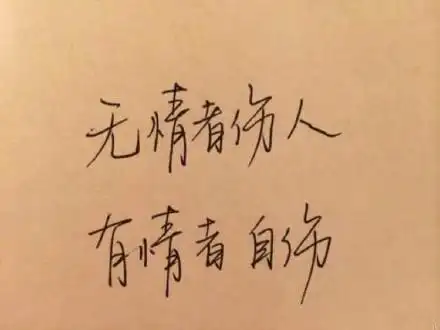 无情者伤人
有情者自伤